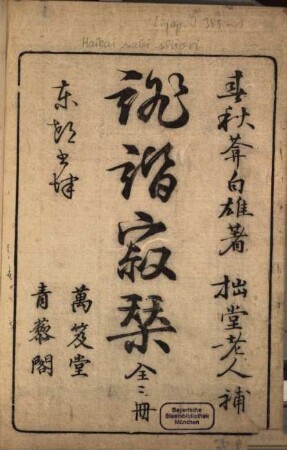 Haikai sabi shiori
春秋菴白雄著 拙堂老人補
誹諧寂栞 全三冊
东都书肆
萬笈堂
青藜閣
Bayerische
Staatsbibliothek
München